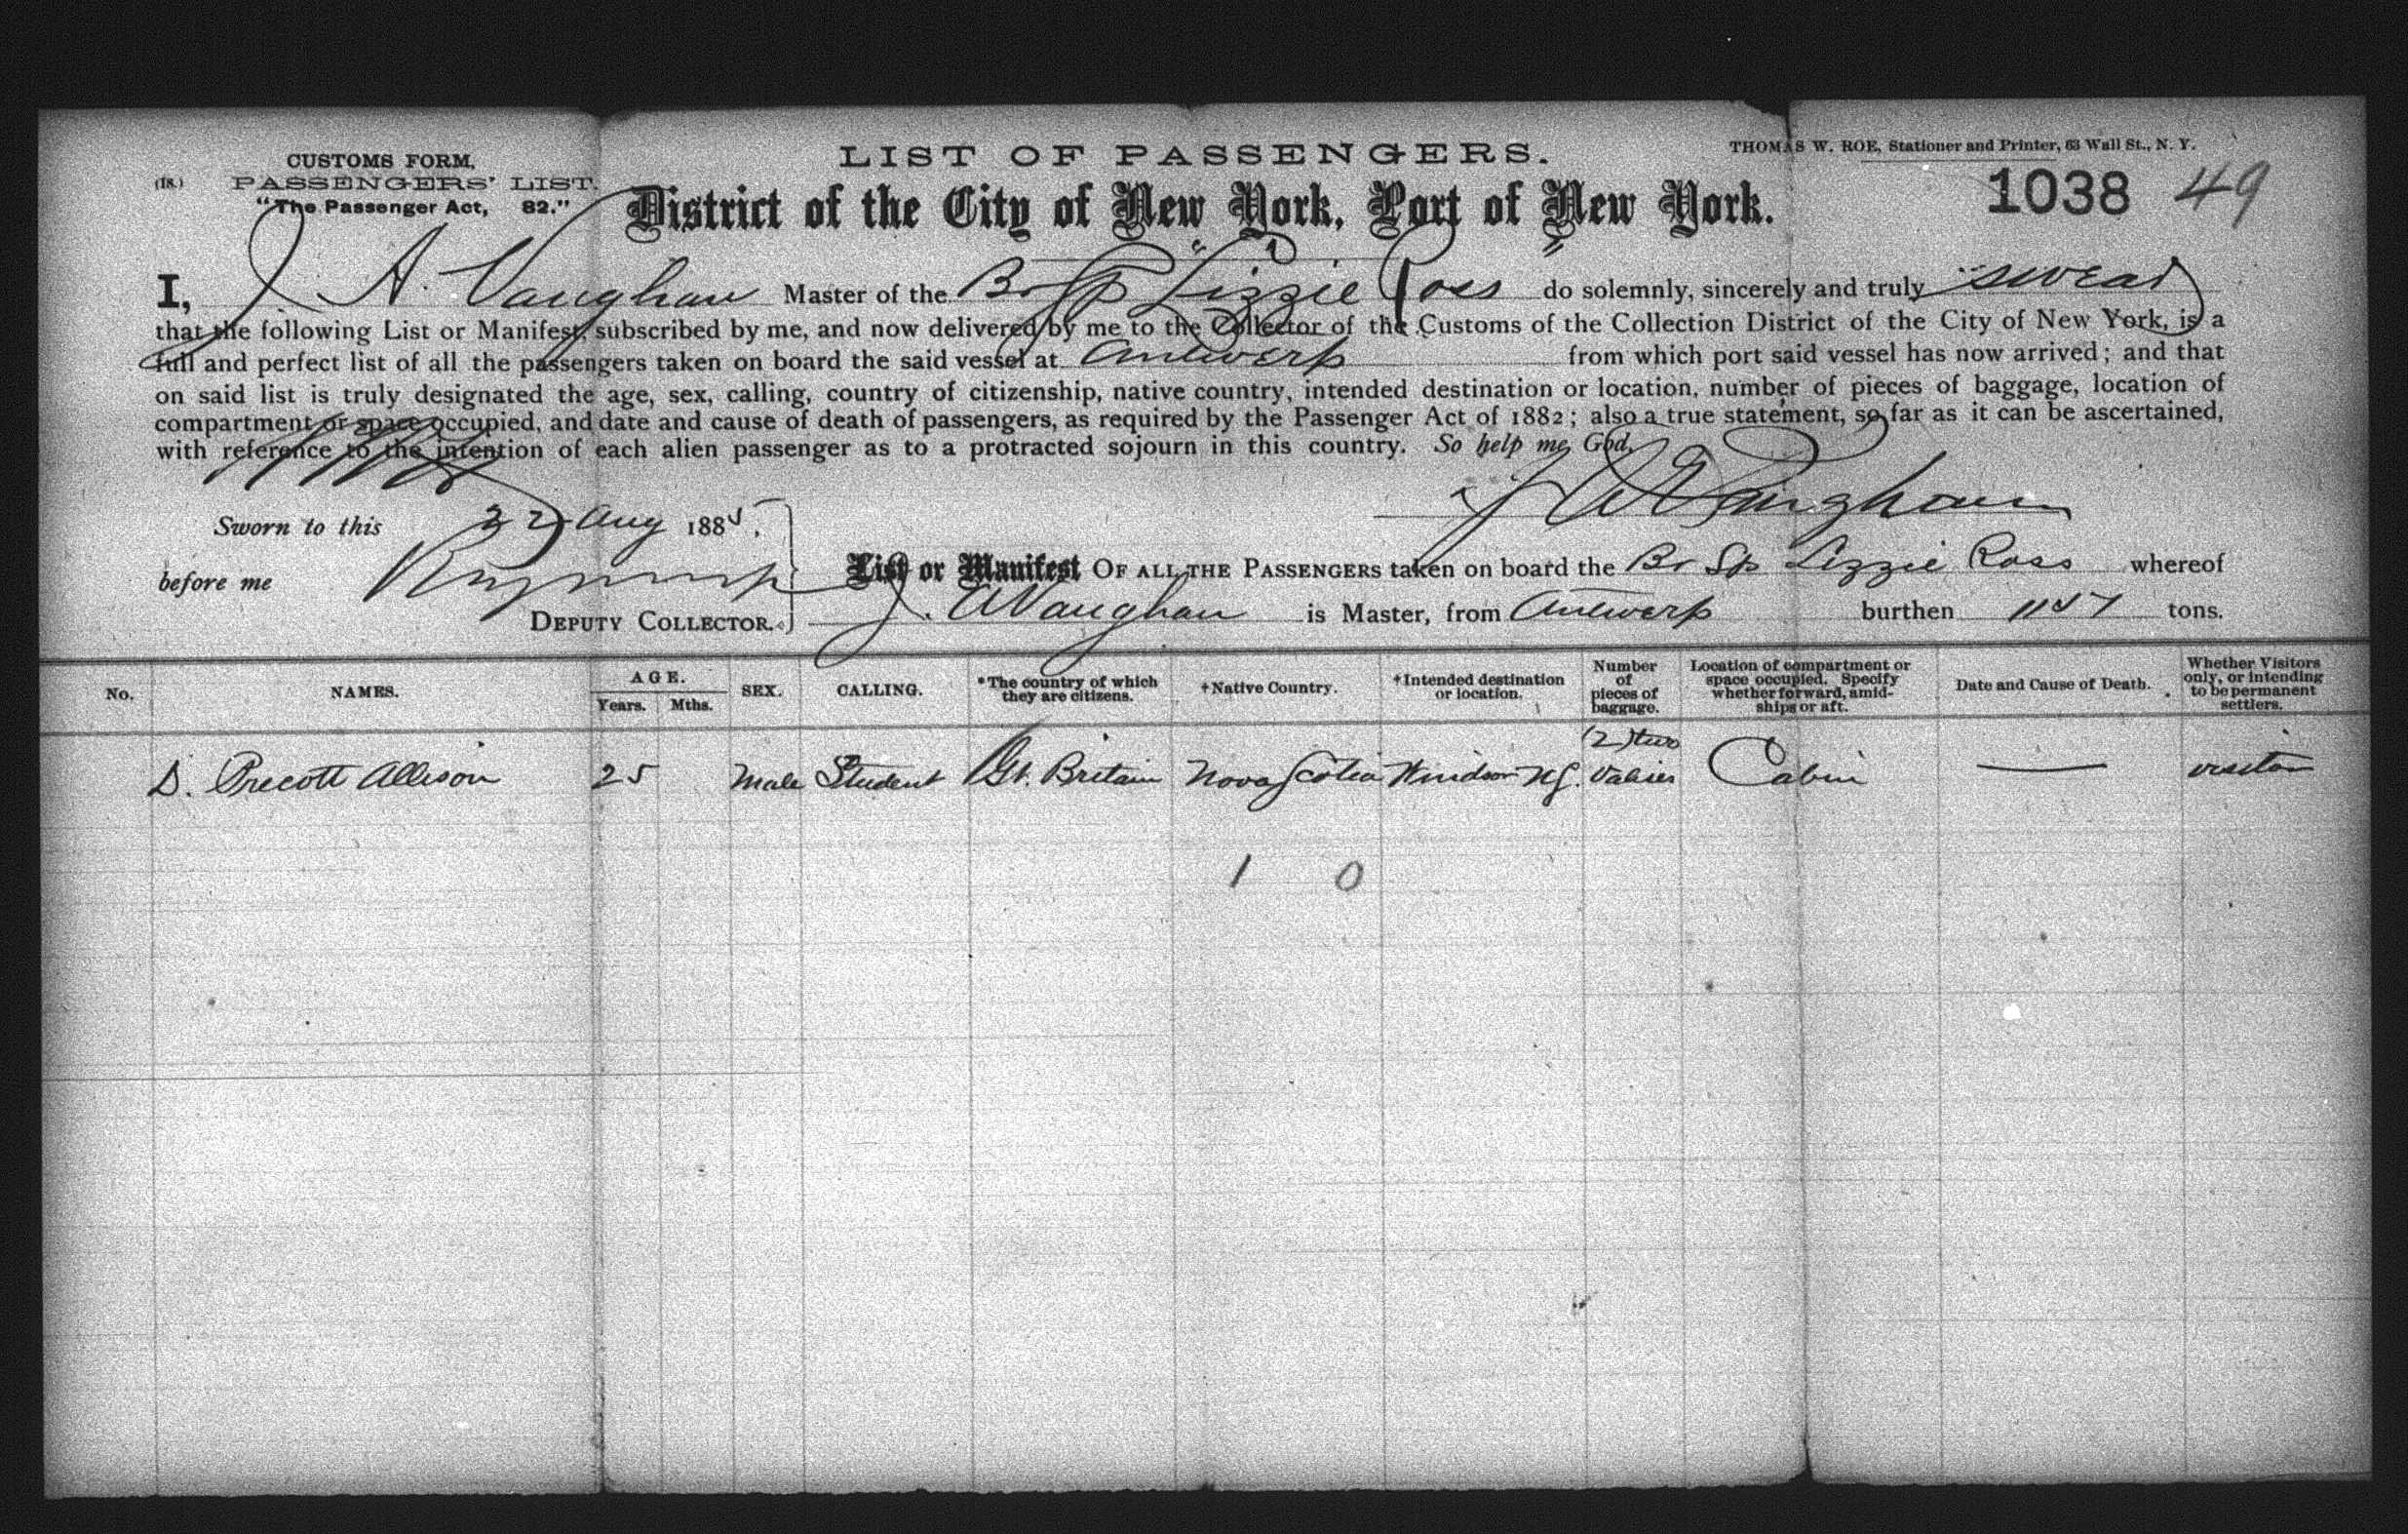 CUSTOMS FORM.
(18.) PASSENGERS' LIST.
"The Passenger Act, 82."
LIST OF PASSENGERS.
District of the City of New York, Port of New York.
THOMAS W. ROE, Stationer and Printer, 63 Wall St., N. Y.
1038 49
I, J A. Vaughan Master of the Br Sp "Lizzie Ross" do solemnly, sincerely and truly swear
that the following List or Manifest, subscribed by me, and now delivered by me to the Collector of the Customs of the Collection District of the City of New York, is a
full and perfect list of all the passengers taken on board the said vessel at Antwerp from which port said vessel has now arrived; and that
on said list is truly designated the age, sex, calling, country of citizenship, native country, intended destination or location, number of pieces of baggage, location of
compartment or space occupied, and date and cause of death of passengers, as required by the Passenger Act of 1882; also a true statement, so far as it can be ascertained,
with reference to the intention of each alien passenger as to a protracted sojourn in this country. So help me God.
J A Vaughan
Sworn to this 22 Aug 1885.
before me
DEPUTY COLLECTOR.
List or Manifest OF ALL THE PASSENGERS taken on board the Br Sp Lizzie Ross whereof
J. A Vaughan is Master, from Antwerp burthen tons.
No. NAMES. AGE. Years. Mths. SEX. CALLING. *The country of which they are citizens. †Native Country. †Intended destination or location. Number of pieces of baggage. Location of compartment or space occupied. Specify whether forward, amidships or aft. Date and Cause of Death. Whether Visitors only, or intending to be permanent settlers.
(2) two
D. Precott Allison 25 Male Student Gt. Britain Nova Scotia Windsor NS. Valies Cabin — visitor
1 0